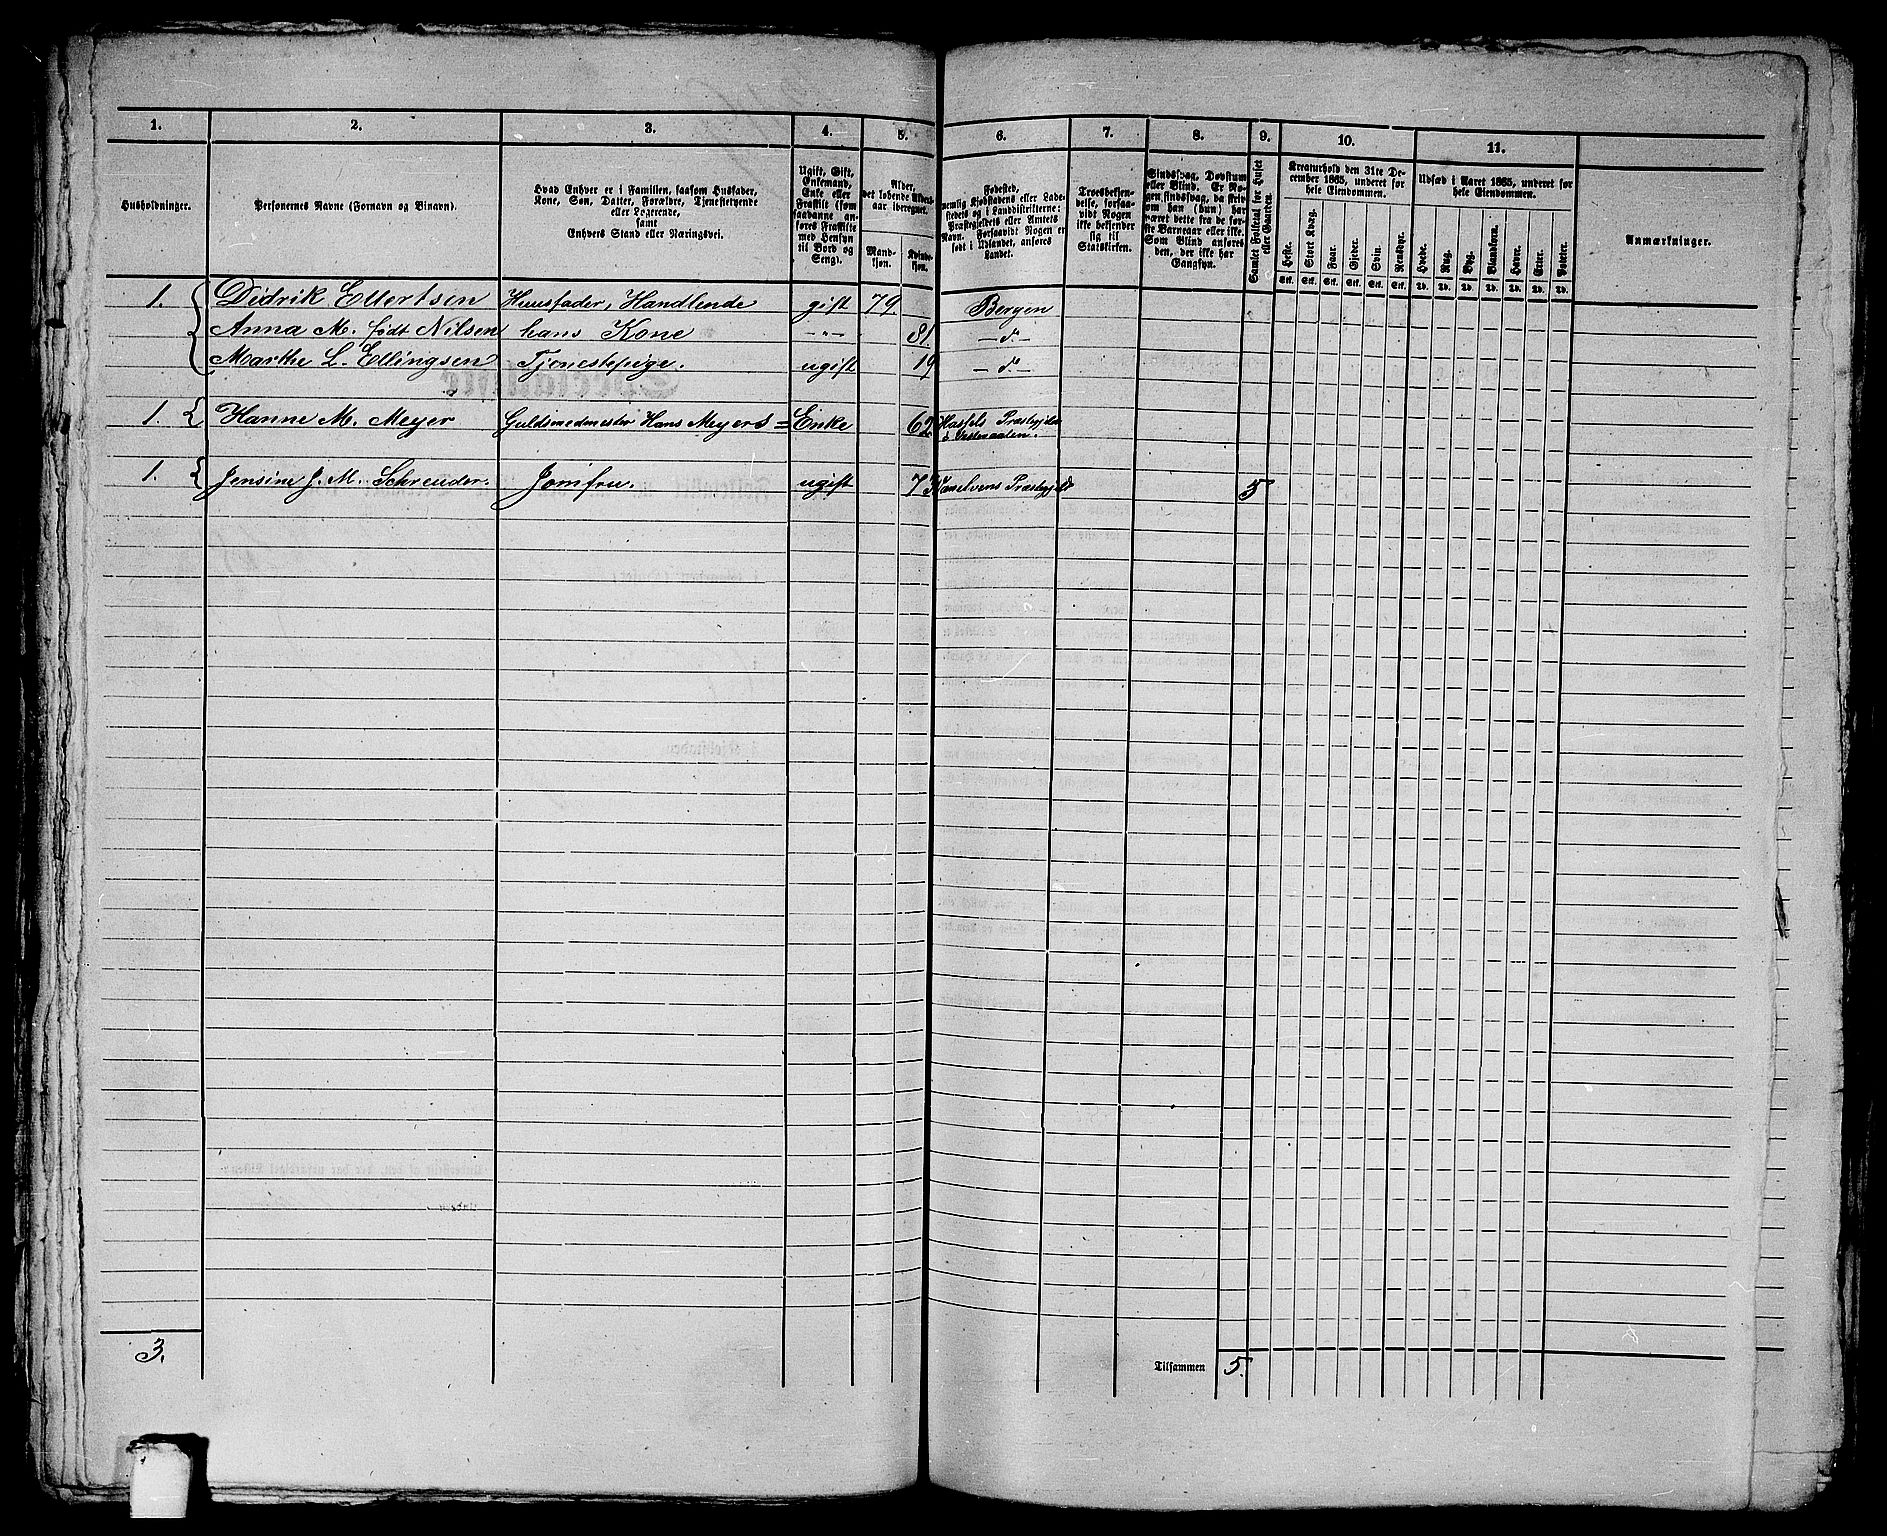 1. 2. 3. 4. 5. 6. 7. 8. 9. 10. 11.
Husholdninger.
Personernes Navne (Fornavn og Binavn).
Hvad Enhver er i Familien, saasom Husfader,
Kone, Søn, Datter, Forældre, Tjenestetyende
eller Logerende,
samt
Enhvers Stand eller Næringsvei.
Ugift, Gift,
Enkemand,
Enke eller
Fraskilt (som
saadanne an-
føres Fraskilte
med Hensyn
til Bord og
Seng).
Alder,
det løbende Alders-
aar iberegnet.
Mand-
kjøn.
Kvinde-
kjøn.
Fødested,
nemlig Kjøbstadens eller Lade-
stedets og i Landdistrikterne:
Præstegjeldets eller Amtets
Navn. Forsaavidt Nogen er
født i Udlandet, anføres
Landet.
Troesbekjen-
delse, forsaa-
vidt Nogen
ikke bekjender
sig til
Statskirken.
Sindssvag, Døvstum
eller Blind. Er No-
gen sindssvag, da skriv
om han (hun) har
været dette fra de før-
ste Barneaar eller ikke.
Som Blind anføres
den, der ikke har
Gangsyn.
Samlet Folketal for Huset
eller Gaarden.
Kreaturhold den 31te De-
cember 1865, underet for
hele Eiendommen.
Heste. Stort Kvæg. Faar. Gjeder. Svin. Rensdyr.
Stk. Stk. Stk. Stk. Stk. Stk.
Udsæd i Aaret 1865, underet for
hele Eiendommen.
Hvede. Rug. Byg. Blandkorn. Havre. Erter. Poteter.
Td. Td. Td. Td. Td. Td. Td.
Anmærkninger.
1. Didrik Ellertsen Huusfader, Handlende gift 79. Bergen
Anna M. født Nilsen hans Kone -"- 81. - do -
Marthe L. Ellingsen Tjenestepige. ugift 19 - do -
1. Hanne M. Meyer Guldsmedmester Hans Meyers = Enke 62. Hassels Præstegjeld
i
1. Jensine J. M. Schreuder. Jomfru. ugift Præstegjeld 5
3.
Tilsammen 5.